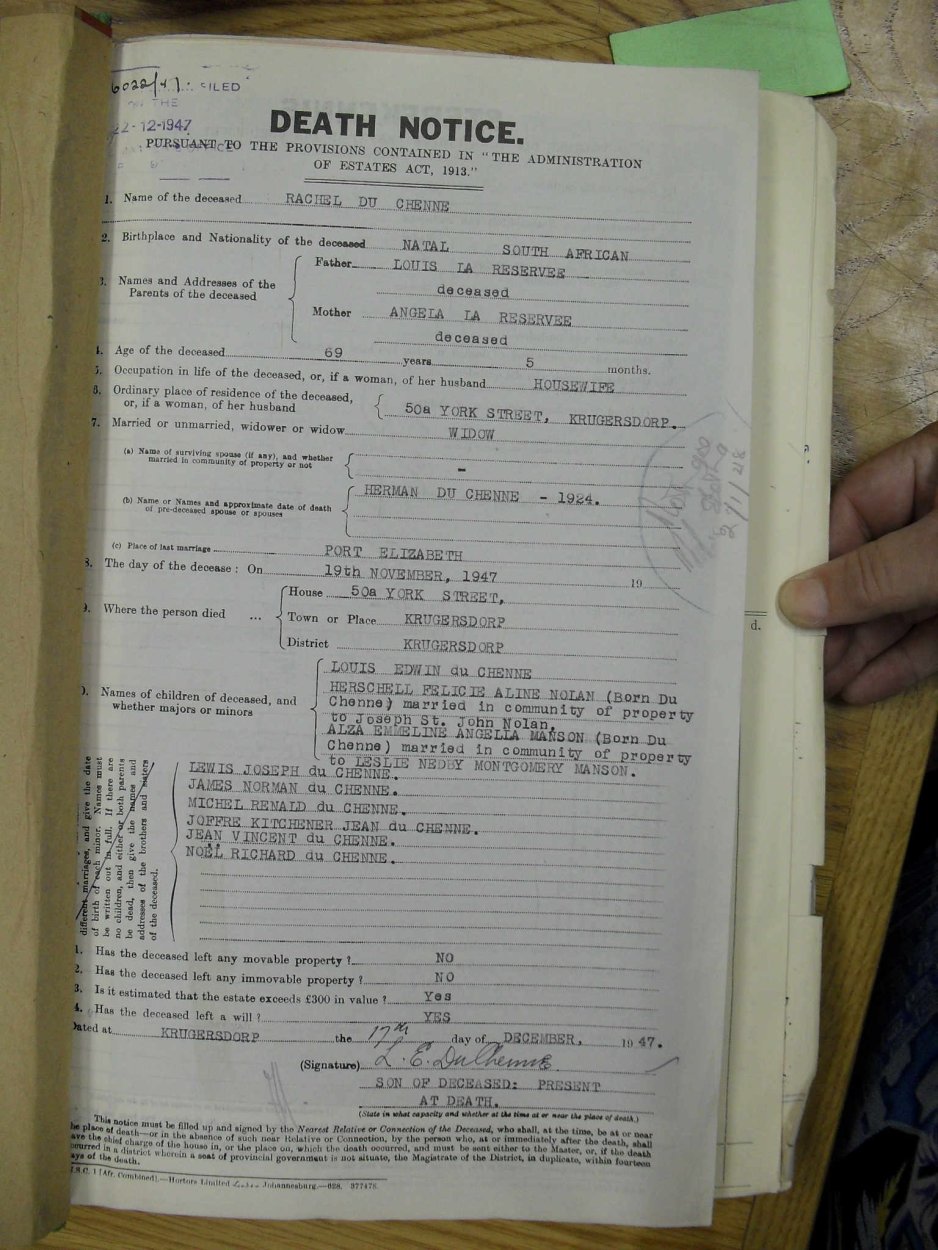 6022/47. FILED
ON THE
22-12-1947
DEATH NOTICE.
PURSUANT TO THE PROVISIONS CONTAINED IN "THE ADMINISTRATION
OF ESTATES ACT, 1913."
1. Name of the deceased RACHEL DU CHENNE
2. Birthplace and Nationality of the deceased NATAL SOUTH AFRICAN
3. Names and Addresses of the Parents of the deceased
Father LOUIS LA RESERVEE
deceased
Mother ANGELA LA RESERVEE
deceased
4. Age of the deceased 69 years 5 months.
5. Occupation in life of the deceased, or, if a woman, of her husband HOUSEWIFE
6. Ordinary place of residence of the deceased,
or, if a woman, of her husband 50a YORK STREET, KRUGERSDORP.
7. Married or unmarried, widower or widow WIDOW
(a) Name of surviving spouse (if any), and whether
married in community of property or not -
(b) Name or Names and approximate date of death
of pre-deceased spouse or spouses HERMAN DU CHENNE - 1924.
(c) Place of last marriage PORT ELIZABETH
8. The day of the decease: On 19th NOVEMBER, 1947 19
9. Where the person died ...
House 50a YORK STREET,
Town or Place KRUGERSDORP
District KRUGERSDORP
d.
0. Names of children of deceased, and
whether majors or minors
LOUIS EDWIN du CHENNE
HERSCHELL FELICIE ALINE NOLAN (Born Du
Chenne) married in community of property
to Joseph St. John Nolan,
ALZA EMMELINE ANGELLA MANSON (Born Du
Chenne) married in community of property
to LESLIE NEDBY MONTGOMERY MANSON.
different marriages, and give the date
of birth of each minor. Names must
be written out in full. If there are
no children, and either or both parents
be dead, then give the names and
addresses of the brothers and sisters
of the deceased.
LEWIS JOSEPH du CHENNE.
JAMES NORMAN du CHENNE.
MICHEL RENALD du CHENNE.
JOFFRE KITCHENER JEAN du CHENNE.
JEAN VINCENT du CHENNE.
NOËL RICHARD du CHENNE.
1. Has the deceased left any movable property? NO
2. Has the deceased left any immovable property? NO
3. Is it estimated that the estate exceeds £300 in value? Yes
4. Has the deceased left a will? YES
Dated at KRUGERSDORP the 17th day of DECEMBER, 1947.
(Signature) L. E. DuChenne
SON OF DECEASED: PRESENT
AT DEATH.
(State in what capacity and whether at the time at or near the place of death.)
This notice must be filled up and signed by the Nearest Relative or Connection of the Deceased, who shall, at the time, be at or near
he place of death—or in the absence of such near Relative or Connection, by the person who, at or immediately after the death, shall
ave the chief charge of the house in, or the place on, which the death occurred, and must be sent either to the Master, or, if the death
ccurred in a district wherein a seat of provincial government is not situate, the Magistrate of the District, in duplicate, within fourteen
ays of the death.
(Afr. Combined).—Hortors Limited Johannesburg.—628. 377478.